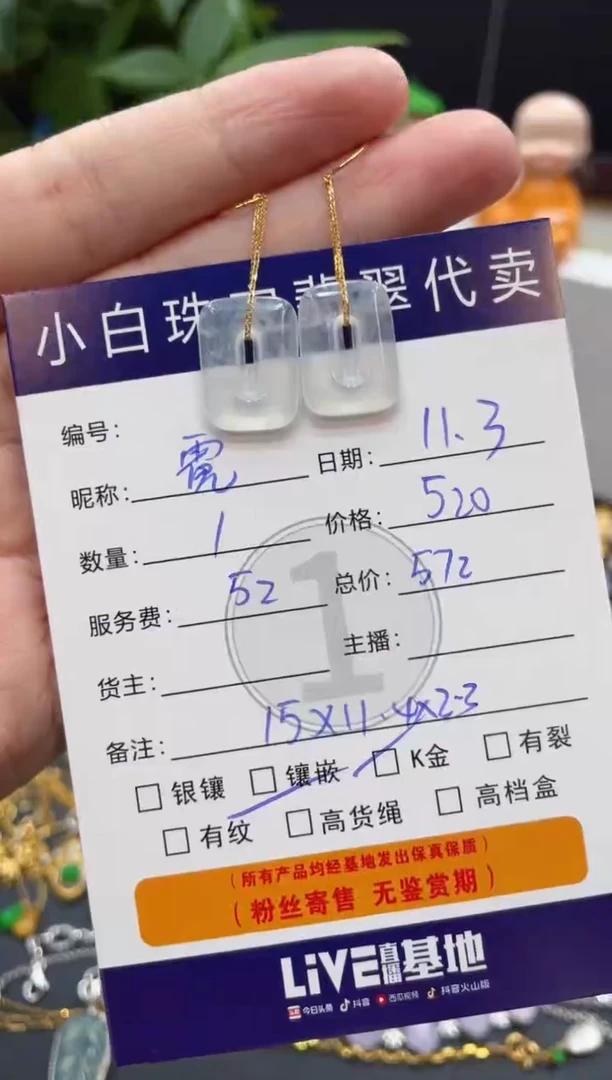 小白珠宝翡翠代卖
编号：
昵称：霓 日期：11.3
数量：1 价格：520
服务费：52 总价：572
货主： 主播：
1
备注：15×11.4×2.3
□银镶 □镶嵌 □K金 □有裂
□有纹 □高货绳 □高档盒
（所有产品均经基地发出保真保质）
（粉丝寄售 无鉴赏期）
LiVE直播基地
头条 今日头条 抖音 西瓜视频 抖音火山版